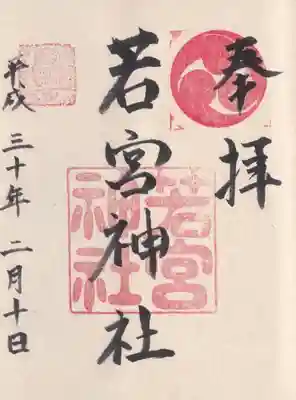 奉拝
若宮神社
若宮
神社
平成三十年二月十日